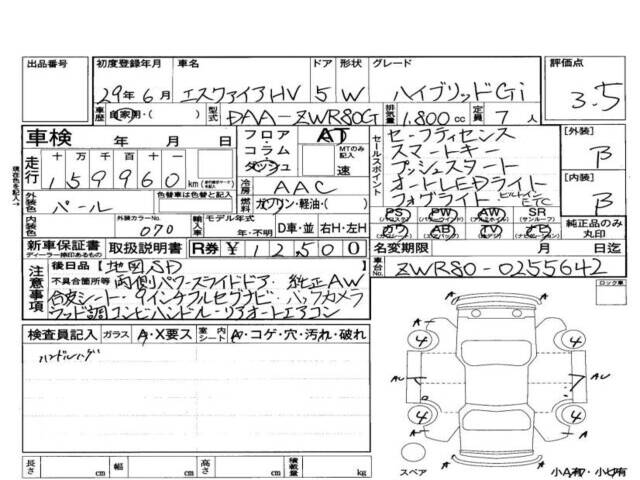 出品番号 初度登録年月 車名 ドア 形状 グレード 評価点
29年6月 エスクァイアHV 5 W ハイブリッドGi 3.5
車歴 自家用・( ) 型式 DAA-ZWR80G 排気量 1,800cc 定員 7人
車検 年 月 日
フロア・コラム・ダッシュ AT MTのみ記入 速
セールスポイント
セーフティセンス
スマートキー
プッシュスタート
オートLEDライト
フォグライト ビルトインETC
[外装] B
[内装] B
現在色を記入→
走行 十万千百十 159960km
冷房 AAC
外装色 パール 色替車は色替前の色
ガソリン・軽油・( )
内装色 外装カラーNo. 070 輸入車 モデル年式 年・不明 D車・並 右H・左H
PS PW AW SR(サンルーフ)
カワ AB TV ナビ
純正品のみ丸印
新車保証書 ディーラー捺印あるもの 取扱説明書 R券 ¥12,500
名変期限 月 日迄
車台No. ZWR80-0255642
注意事項
後日品【地図SD 】
不具合箇所等 両側パワースライドドア・純正AW
合皮シート・9インチフルセグナビ・バックカメラ
ウッド調コンビハンドル・リアオートエアコン
ロック車
検査員記入 ガラス A・X要ス 室内シート A・コゲ・穴・汚れ・破れ
ハンドルハゲ
A A
4 4
AU AU
4 4
A A
スペア
小A有・小U有
長さ cm 幅 cm 高さ cm 積載量 kg